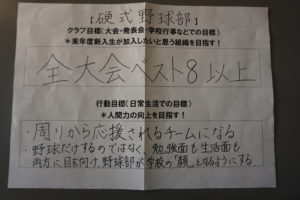 【硬式野球部】
クラブ目標(大会・発表会・学校行事などでの目標)
*来年度新入生が加入したいと思う組織を目指す!
全大会ベスト8以上
行動目標(日常生活での目標)
*人間力の向上を目指す!
・周りから応援されるチームになる
・野球だけするのではなく、勉強面も生活面も
両方に目を向け、野球部が学校の「顔」となるようにする。